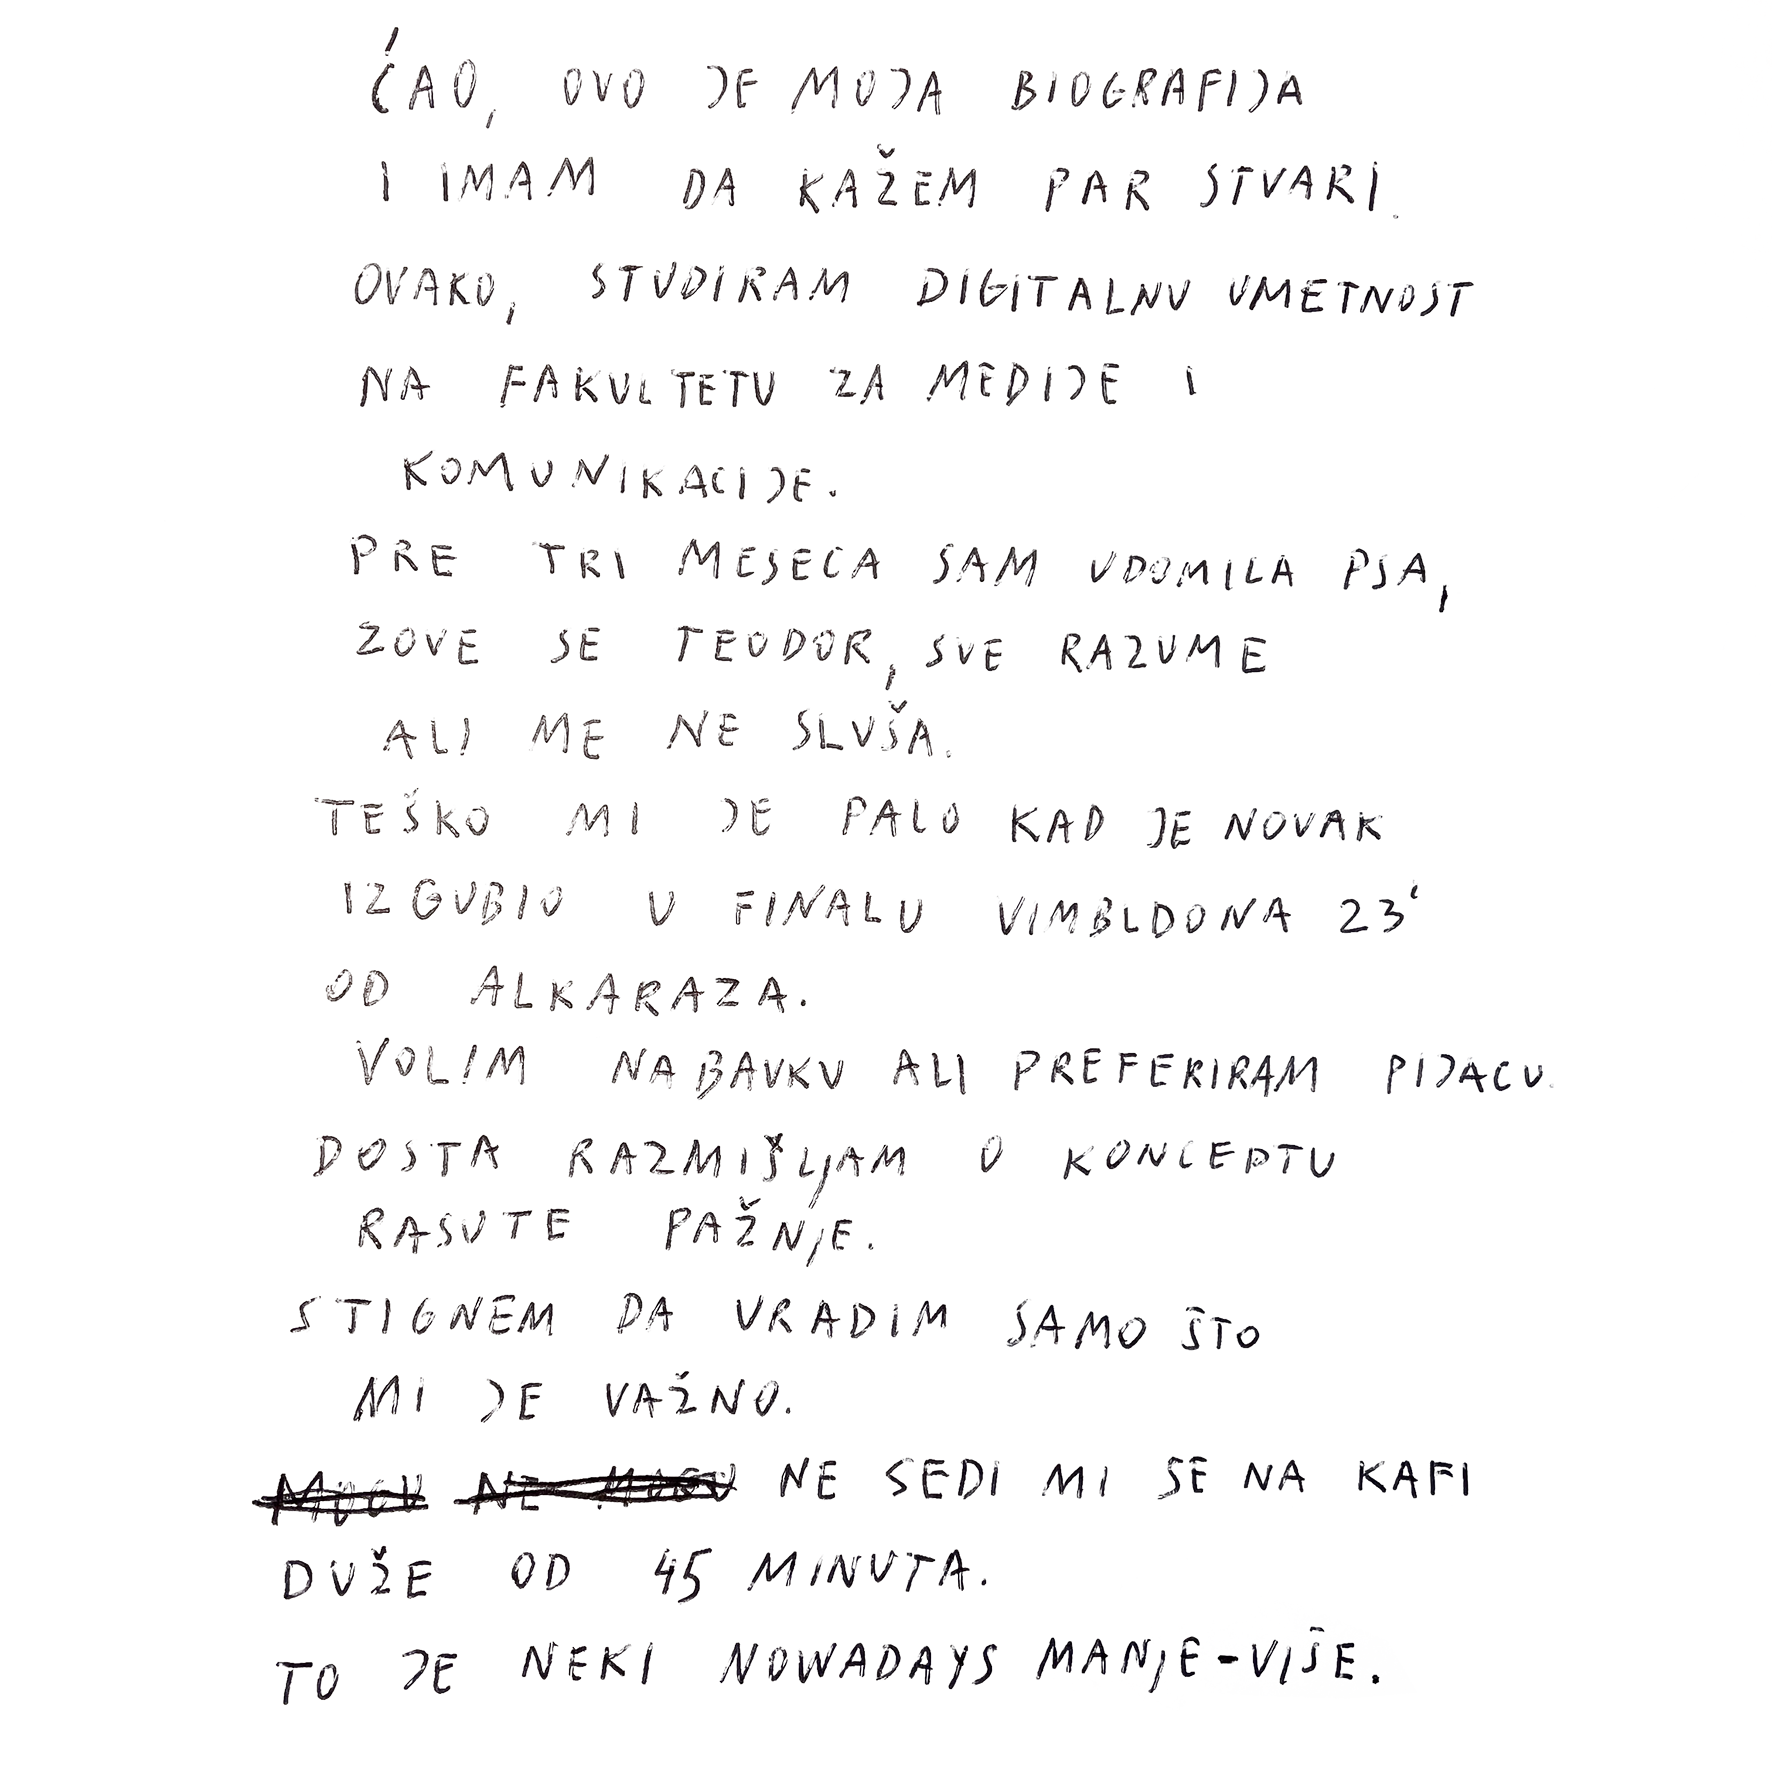 ĆAO, OVO JE MOJA BIOGRAFIJA
I IMAM DA KAŽEM PAR STVARI.
OVAKO, STUDIRAM DIGITALNU UMETNOST
NA FAKULTETU ZA MEDIJE I
KOMUNIKACIJE.
PRE TRI MESECA SAM UDOMILA PSA,
ZOVE SE TEODOR, SVE RAZUME
ALI ME NE SLUŠA.
TEŠKO MI JE PALO KAD JE NOVAK
IZGUBIO U FINALU VIMBLDONA 23'
OD ALKARAZA.
VOLIM NABAVKU ALI PREFERIRAM PIJACU.
DOSTA RAZMIŠLJAM O KONCEPTU
RASUTE PAŽNJE.
STIGNEM DA URADIM SAMO ŠTO
MI JE VAŽNO.
MOGU NE MOGU NE SEDI MI SE NA KAFI
DUŽE OD 45 MINUTA.
TO JE NEKI NOWADAYS MANJE-VIŠE.